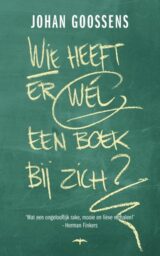 JOHAN GOOSSENS
WIE HEEFT
ER WEL
EEN BOEK
BIJ ZICH?
'Wat een ongelooflijk rake, mooie en lieve verhalen!'
- Herman Finkers